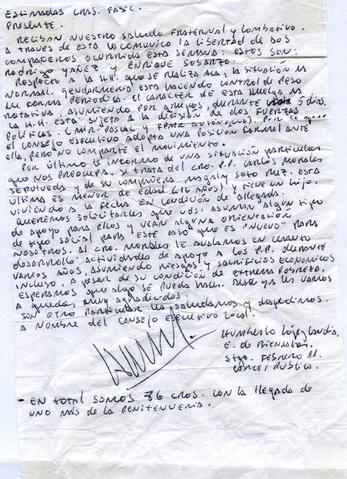 ESTIMADAS CRAS. FASIC.
PRESENTE.
RECIBAN NUESTRO SALUDO FRATERNAL Y COMBATIVO
A TRAVES DE ESTA LE COMUNICO LA LIBERTAD DE DOS
COMPAÑEROS OCURRIDA ESTA SEMANA. ESTOS SON:
RODRIGO YAÑEZ Y ENRIQUE
RESPECTO A LA H.H. QUE SE REALIZA ACA, LA SITUACION ES
NORMAL. GENDARMERIA ESTA HACIENDO CONTROL DE PESO
EN FORMA PERIODICA. EL CARACTER DE ESTA HUELGA ES
ROTATIVA, ASUMIENDO POR GRUPOS, DURANTE 5 DIAS.
LA H.H. ESTA SUJETA A LA DECISION DE DOS FUERZAS
POLITICAS. (MIR-
EL CONSEJO EJECUTIVO ADOPTA UNA POSICION FORMAL ANTE
ELLA, PERO NO COMPARTE EL MOVIMIENTO.
POR ULTIMO LE INFORMO DE UNA SITUACION PARTICULAR
QUE NOS PREOCUPA. SE TRATA DEL CRO. P.P. CARLOS MORALES
SEPULVEDA Y DE SU COMPAÑERA MAGALY SOTO RUZ. ESTA
ULTIMA ES MENOR DE EDAD (16 AÑOS) Y TIENE UN HIJO.
VIVIENDO A LA FECHA EN CONDICION DE ALLEGADA.
QUEREMOS SOLICITARLES QUE UDS. ASUMAN ALGUN TIPO
DE APOYO PARA ELLOS Y VEAN ALGUNA ORIENTACION
DE TIPO SOCIAL PARA ESTE CASO QUE ES "NUEVO" PARA
NOSOTROS. AL CRO. MORALES LE AVALAMOS EN CUANTO
DESARROLLO ACTIVIDADES DE APOYO A LOS P.P. DURANTE
VARIOS AÑOS, ASUMIENDO RIESGOS Y SACRIFICIOS ECONOMICOS
INCLUSO, A PESAR DE SU CONDICION DE EXTREMA POBREZA.
ESPERAMOS QUE ALGO SE PUEDA HACER. DESDE YA LES VAMOS
A QUEDAR MUY AGRADECIDOS.
SIN OTRO PARTICULAR LES SALUDAMOS Y DESPEDIMOS.
A NOMBRE DEL CONSEJO EJECUTIVO LOCAL.
HUMBERTO LOPEZ
E. DE BIENESTAR.
STGO. FEBRERO
CARCEL PUBLICA.
- EN TOTAL SOMOS 76 CROS. CON LA LLEGADA DE
UNO MAS DE LA PENITENCIARIA.